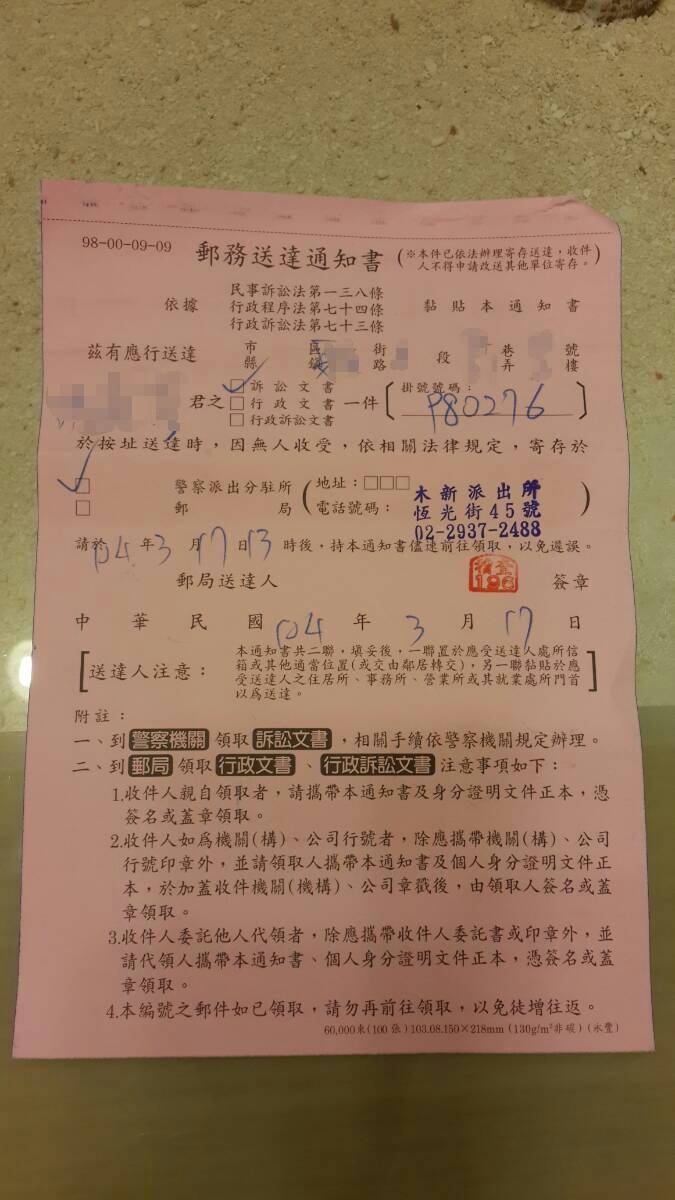 98-00-09-09
郵務送達通知書
(※本件已依法辦理寄存送達,收件
人不得申請改送其他單位寄存。)
民事訴訟法第一三八條
依據 行政程序法第七十四條 黏貼本通知書
行政訴訟法第七十三條
茲有應行送達 市縣 區鎮 街路 段 巷弄 號樓
君之 ☑訴訟文書
□行政文書 一件 (掛號號碼:P80276)
□行政訴訟文書
於按址送達時,因無人收受,依相關法律規定,寄存於
☑ 警察派出分駐所
□ 郵局
(地址:□□□
電話號碼: )
木新派出所
恆光街45號
02-2937-2488
請於104年3月17日13時後,持本通知書儘速前往領取,以免遲誤。
郵局送達人 簽章
中華民國104年3月17日
[送達人注意:
本通知書共二聯,填妥後,一聯置於應受送達人處所信
箱或其他適當位置(或交由鄰居轉交),另一聯黏貼於應
受送達人之住居所、事務所、營業所或其就業處所門首
以為送達。]
附註:
一、到警察機關領取訴訟文書,相關手續依警察機關規定辦理。
二、到郵局領取行政文書、行政訴訟文書注意事項如下:
1.收件人親自領取者,請攜帶本通知書及身分證明文件正本,憑
簽名或蓋章領取。
2.收件人如為機關(構)、公司行號者,除應攜帶機關(構)、公司
行號印章外,並請領取人攜帶本通知書及個人身分證明文件正
本,於加蓋收件機關(機構)、公司章戳後,由領取人簽名或蓋
章領取。
3.收件人委託他人代領者,除應攜帶收件人委託書或印章外,並
請代領人攜帶本通知書、個人身分證明文件正本,憑簽名或蓋
章領取。
4.本編號之郵件如已領取,請勿再前往領取,以免徒增往返。
60,000束(100張)103.08.150×218mm(130g/m²非碳)(永豐)